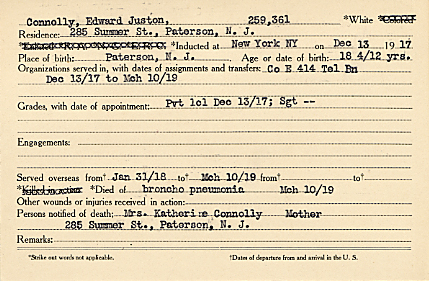 Connolly, Edward Juston, 259,361 *White *Colored
Residence: 285 Summer St., Paterson, N. J.
*Inducted at New York NY on Dec 13 1917
Place of birth: Paterson, N. J. Age or date of birth: 18 4/12 yrs.
Organizations served in, with dates of assignments and transfers: Co E 414 Tel Bn
Dec 13/17 to Mch 10/19
Grades, with date of appointment: Pvt 1cl Dec 13/17; Sgt --
Engagements:
Served overseas from† Jan 31/18 to† Mch 10/19 from† to†
*Killed in action *Died of broncho pneumonia Mch 10/19
Other wounds or injuries received in action:
Persons notified of death: Mrs. Katherine Connolly Mother
285 Summer St., Paterson, N. J.
Remarks:
*Strike out words not applicable. †Dates of departure from and arrival in the U. S.